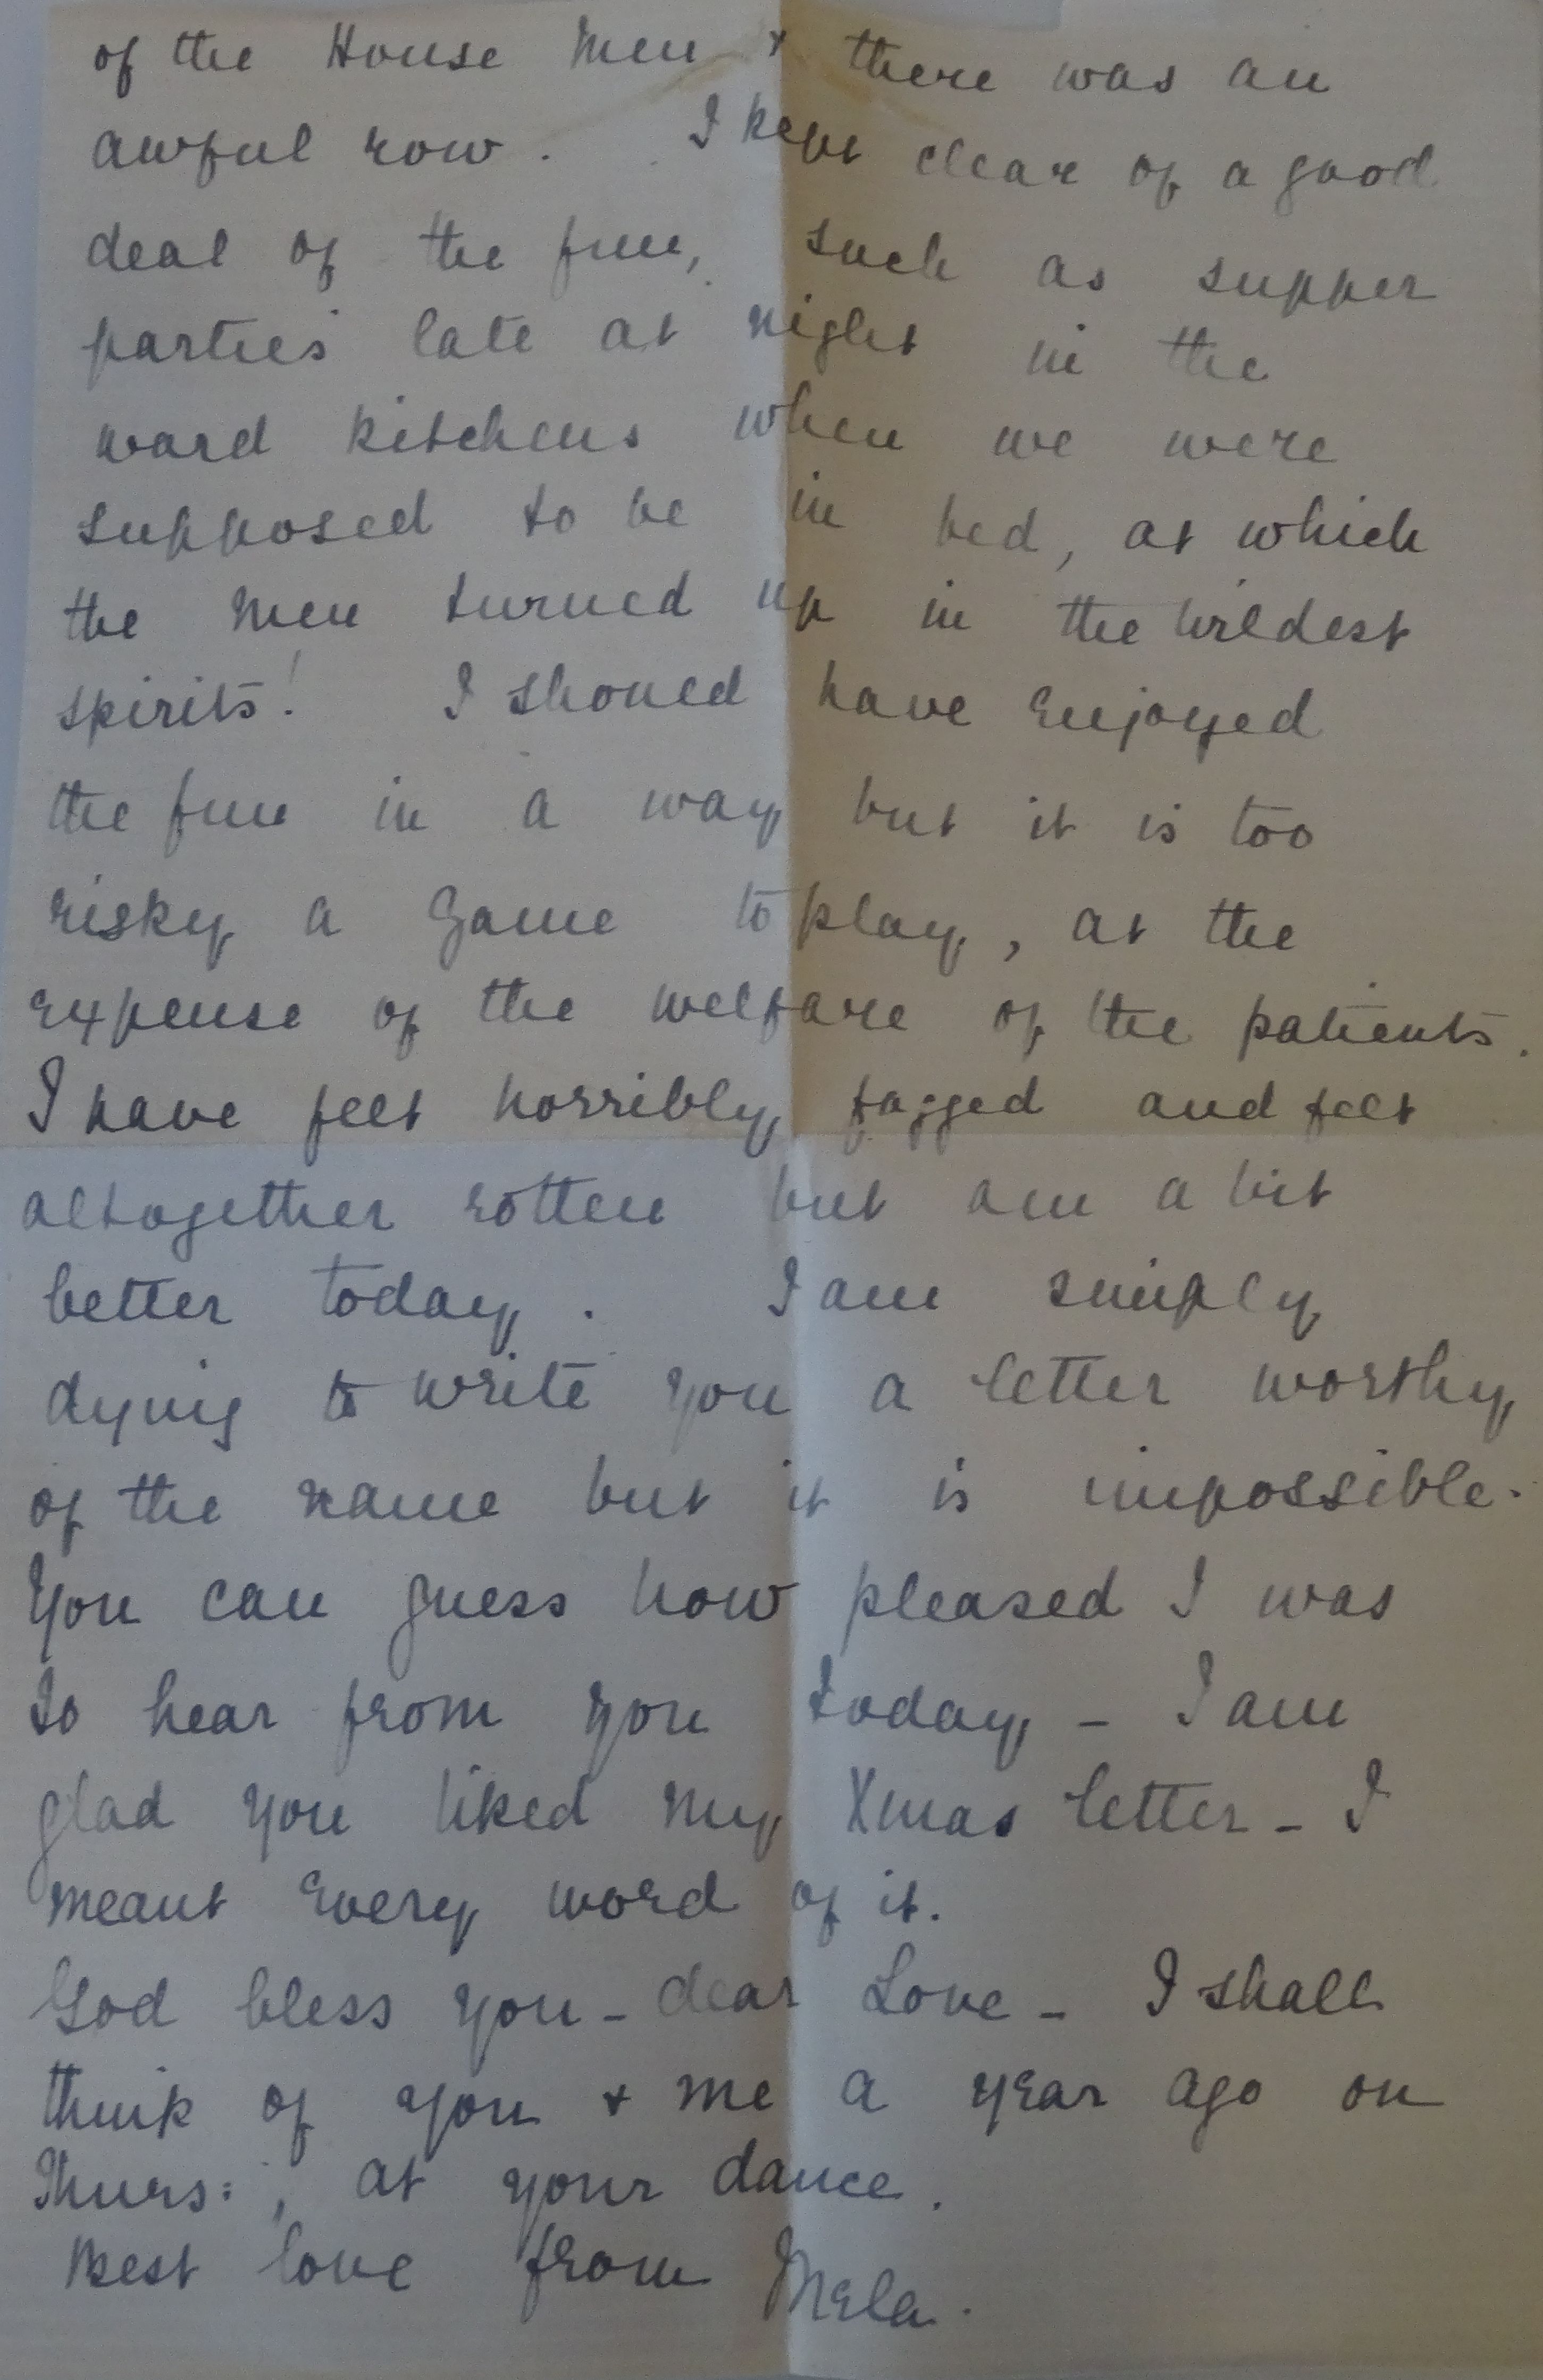 of the House Men + there was an
awful row. I kept clear of a good
deal of the fun, such as supper
parties late at night in the
ward kitchens when we were
supposed to be in bed, at which
the Men turned up in the wildest
spirits! I should have enjoyed
the fun in a way but it is too
risky a game to play, at the
expense of the welfare of the patients.
I have felt horribly fagged and felt
altogether rotten but am a bit
better today. I am simply
dying to write you a letter worthy
of the name but it is impossible.
You can guess how pleased I was
to hear from you today - I am
glad you liked my Xmas letter - I
meant every word of it.
God bless you - dear Love - I shall
think of you + me a year ago on
Thurs:, at your dance.
Best love from Mela.